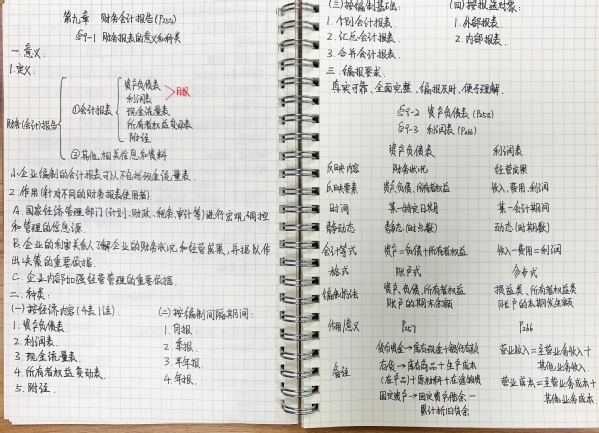 第九章 财务会计报告(P252)
§9-1 财务报表的意义和种类
一.意义:
1.定义:
财务(会计)报告
①会计报表
资产负债表
利润表
月报
现金流量表
所有者权益变动表
附注
②其他相关信息和资料
小企业编制的会计报表可以不包括现金流量表.
2.作用(针对不同的财务报表使用者)
A.国家经济管理部门(计划、财政、税务、审计等)进行宏观调控
和管理的信息源.
B.企业的利害关系人了解企业的财务状况和经营成果,并据以作
出决策的重要依据.
C.企业内部加强经营管理的重要依据.
二.种类:
(一)按经济内容(4表1注)
1.资产负债表.
2.利润表.
3.现金流量表.
4.所有者权益变动表.
5.附注.
(二)按编制间隔期间:
1.月报.
2.季报.
3.半年报.
4.年报.
(三)按编制基础:
1.个别会计报表.
2.汇总会计报表.
3.合并会计报表.
(四)按报送对象:
1.外部报表.
2.内部报表.
三.编报要求.
真实可靠、全面完整、编报及时、便于理解.
§9-2 资产负债表(P258)
§9-3 利润表(P266)
资产负债表 利润表
反映内容 财务状况 经营成果
反映要素 资产、负债、所有者权益 收入、费用、利润
时间 某一特定日期 某一会计期间
静动态 静态(时点数) 动态(时期数)
会计等式 资产=负债+所有者权益 收入-费用=利润
格式 账户式 多步式
编制方法 资产、负债、所有者权益 损益类、所有者权益类
账户的期末余额 账户的本期发生额
作用/意义 P257 P266
备注
货币资金→库存现金+银行存款
存货→库存商品+生产成本
(在产品)+原材料+在途物资
固定资产→固定资产借余-
累计折旧贷余
营业收入=主营业务收入+
其他业务收入
营业成本=主营业务成本+
其他业务成本